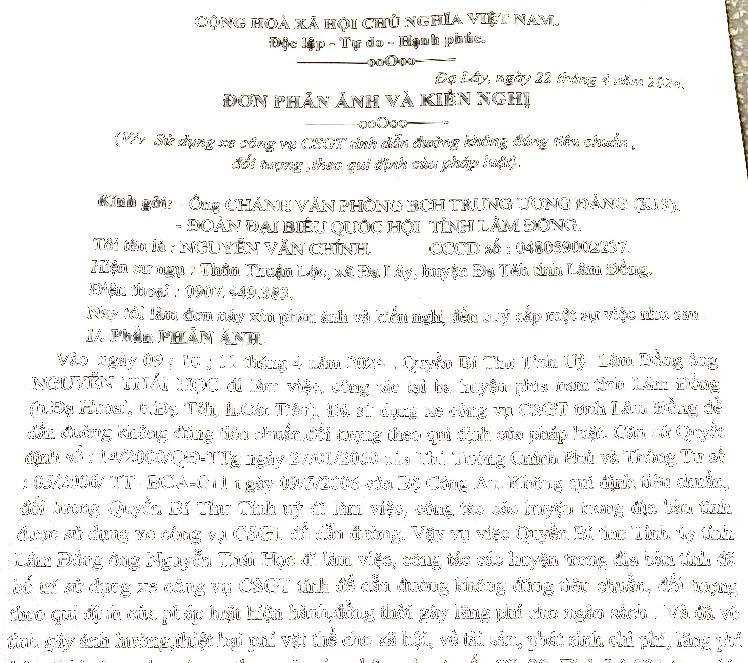 CỘNG HOÀ XÃ HỘI CHỦ NGHĨA VIỆT NAM.
Độc lập - Tự do - Hạnh phúc.
ooOoo
Đạ Lây, ngày 22 tháng 4 năm 2024.
ĐƠN PHẢN ÁNH VÀ KIẾN NGHỊ
ooOoo
(V/v Sử dụng xe công vụ CSGT tỉnh dẫn đường không đúng tiêu chuẩn,
đối tượng ,theo qui định của pháp luật).
Kính gửi: - Ông CHÁNH VĂN PHÒNG BCH TRUNG ƯƠNG ĐẢNG (K13).
- ĐOÀN ĐẠI BIỂU QUỐC HỘI TỈNH LÂM ĐỒNG.
Tôi tên là : NGUYỄN VĂN CHỈNH. CCCD số : 048059002237.
Hiện cư ngụ : Thôn Thuận Lộc, xã Đạ Lây, huyện Đạ Tẻh tỉnh Lâm Đồng.
Điện thoại : 0907.449.383.
Nay tôi làm đơn này xin phản ánh và kiến nghị đến quý cấp một sự việc như sau
I/. Phần PHẢN ÁNH
Vào ngày 09 ; 10 ; 11 tháng 4 năm 2024 . Quyền Bí Thư Tỉnh Uỷ Lâm Đồng ông
NGUYỄN THÁI HỌC đi làm việc, công tác tại ba huyện phía nam tỉnh Lâm Đồng
(h.Đạ Huoai, h.Đạ Tẻh, h.Cát Tiên). Đã sử dụng xe công vụ CSGT tỉnh Lâm Đồng để
dẫn đường không đúng tiêu chuẩn,đối tượng theo qui định của pháp luật. Căn cứ Quyết
định số : 14/2000/QĐ-TTg ngày 27/01/2000 của Thủ Tướng Chính Phủ và Thông Tư số
: 05/2006/ TT- BCA-C11 ngày 09/5/2006 của Bộ Công An. Không qui định tiêu chuẩn,
đối tượng Quyền Bí Thư Tỉnh uỷ đi làm việc, công tác các huyện trong địa bàn tỉnh
được sử dụng xe công vụ CSGT để dẫn đường. Vậy vụ việc Quyền Bí thư Tỉnh ủy tỉnh
Lâm Đồng ông Nguyễn Thái Học đi làm việc, công tác các huyện trong địa bàn tỉnh đã
bố trí sử dụng xe công vụ CSGT tỉnh để dẫn đường không đúng tiêu chuẩn, đối tượng
theo qui định của pháp luật hiện hành,đồng thời gây lãng phí cho ngân sách . Và đã vô
tình gây ảnh hưởng,thiệt hại phi vật thể cho xã hội, về tài sản, phát sinh chi phí, lãng phí